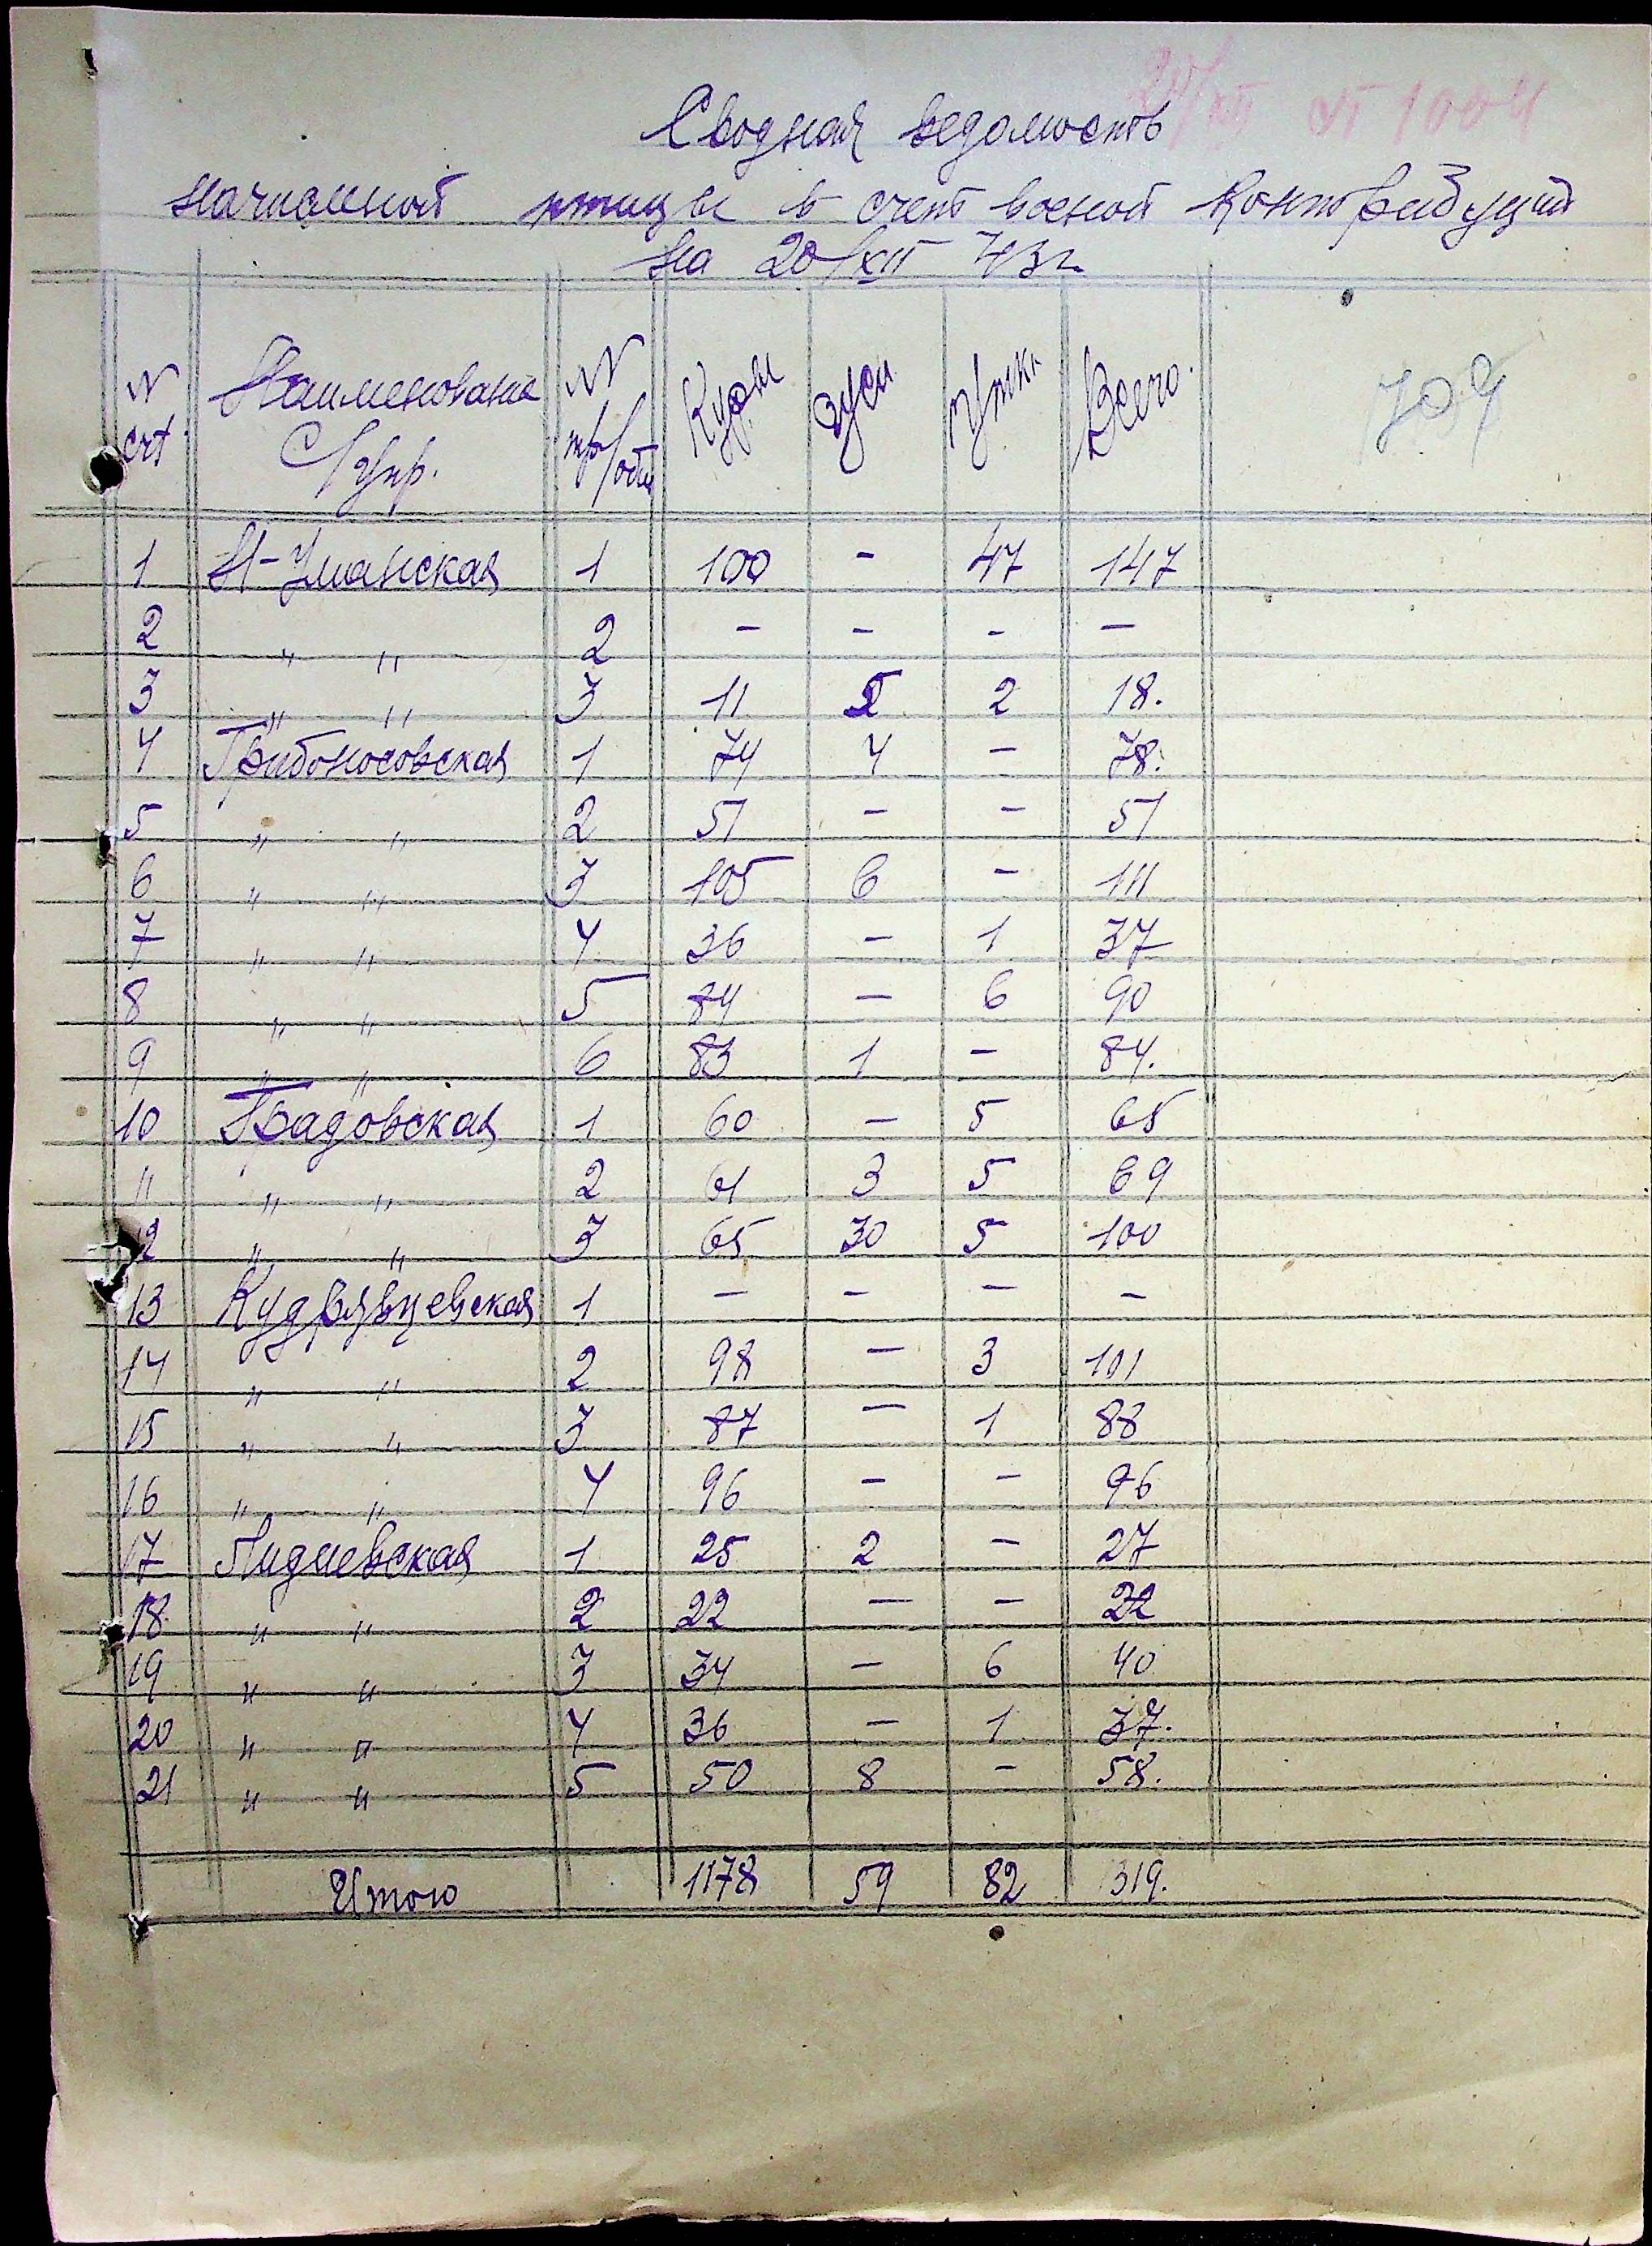 Сводная ведомость
начисленной птицы в счет военой контрибуции
на 20/XII 43 г.
709
№ Наименование № Куры Гуси Утки Всего.
С/упр.
1 Н-Уманская 1 100 - 47 147
2 " " 2 - - - -
3 " " 3 11 5 2 18.
4 Грибоносовская 1 74 4 - 78.
5 " " 2 51 - - 51
6 " " 3 105 6 - 111
7 " " 4 36 - 1 37
8 " " 5 84 - 6 90
9 " " 6 83 1 - 84.
10 Градовская 1 60 - 5 65
11 " " 2 61 3 5 69
12 " " 3 65 30 5 100
13 Кудрявцевская 1 - - - -
14 " " 2 98 - 3 101
15 " " 3 87 - 1 88
16 " " 4 96 - - 96
17 Лидиевская 1 25 2 - 27
18 " " 2 22 - - 22
19 " " 3 34 - 6 40
20 " " 4 36 - 1 37.
21 " " 5 50 8 - 58.
Итого 1178 59 82 1319.